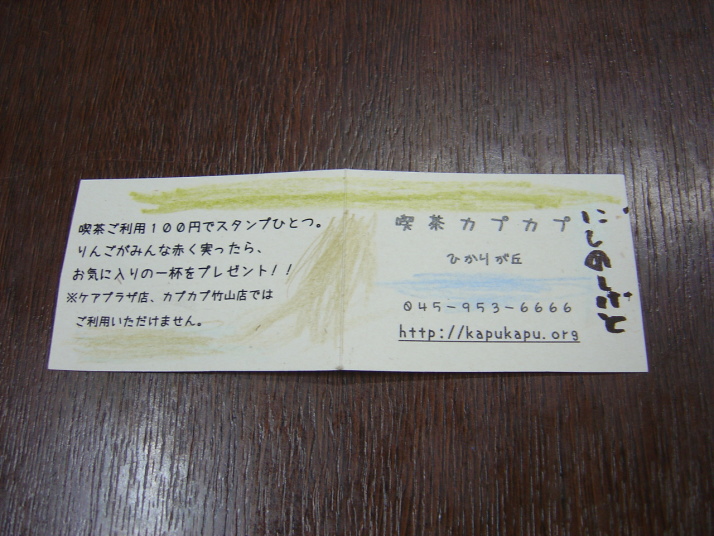 喫茶ご利用１００円でスタンプひとつ。
りんごがみんな赤く実ったら、
お気に入りの一杯をプレゼント！！
※ケアプラザ店、カプカプ竹山店では
ご利用いただけません。
喫茶カプカプ
ひかりが丘
０４５－９５３－６６６６
http://kapukapu.org
にしのしげと